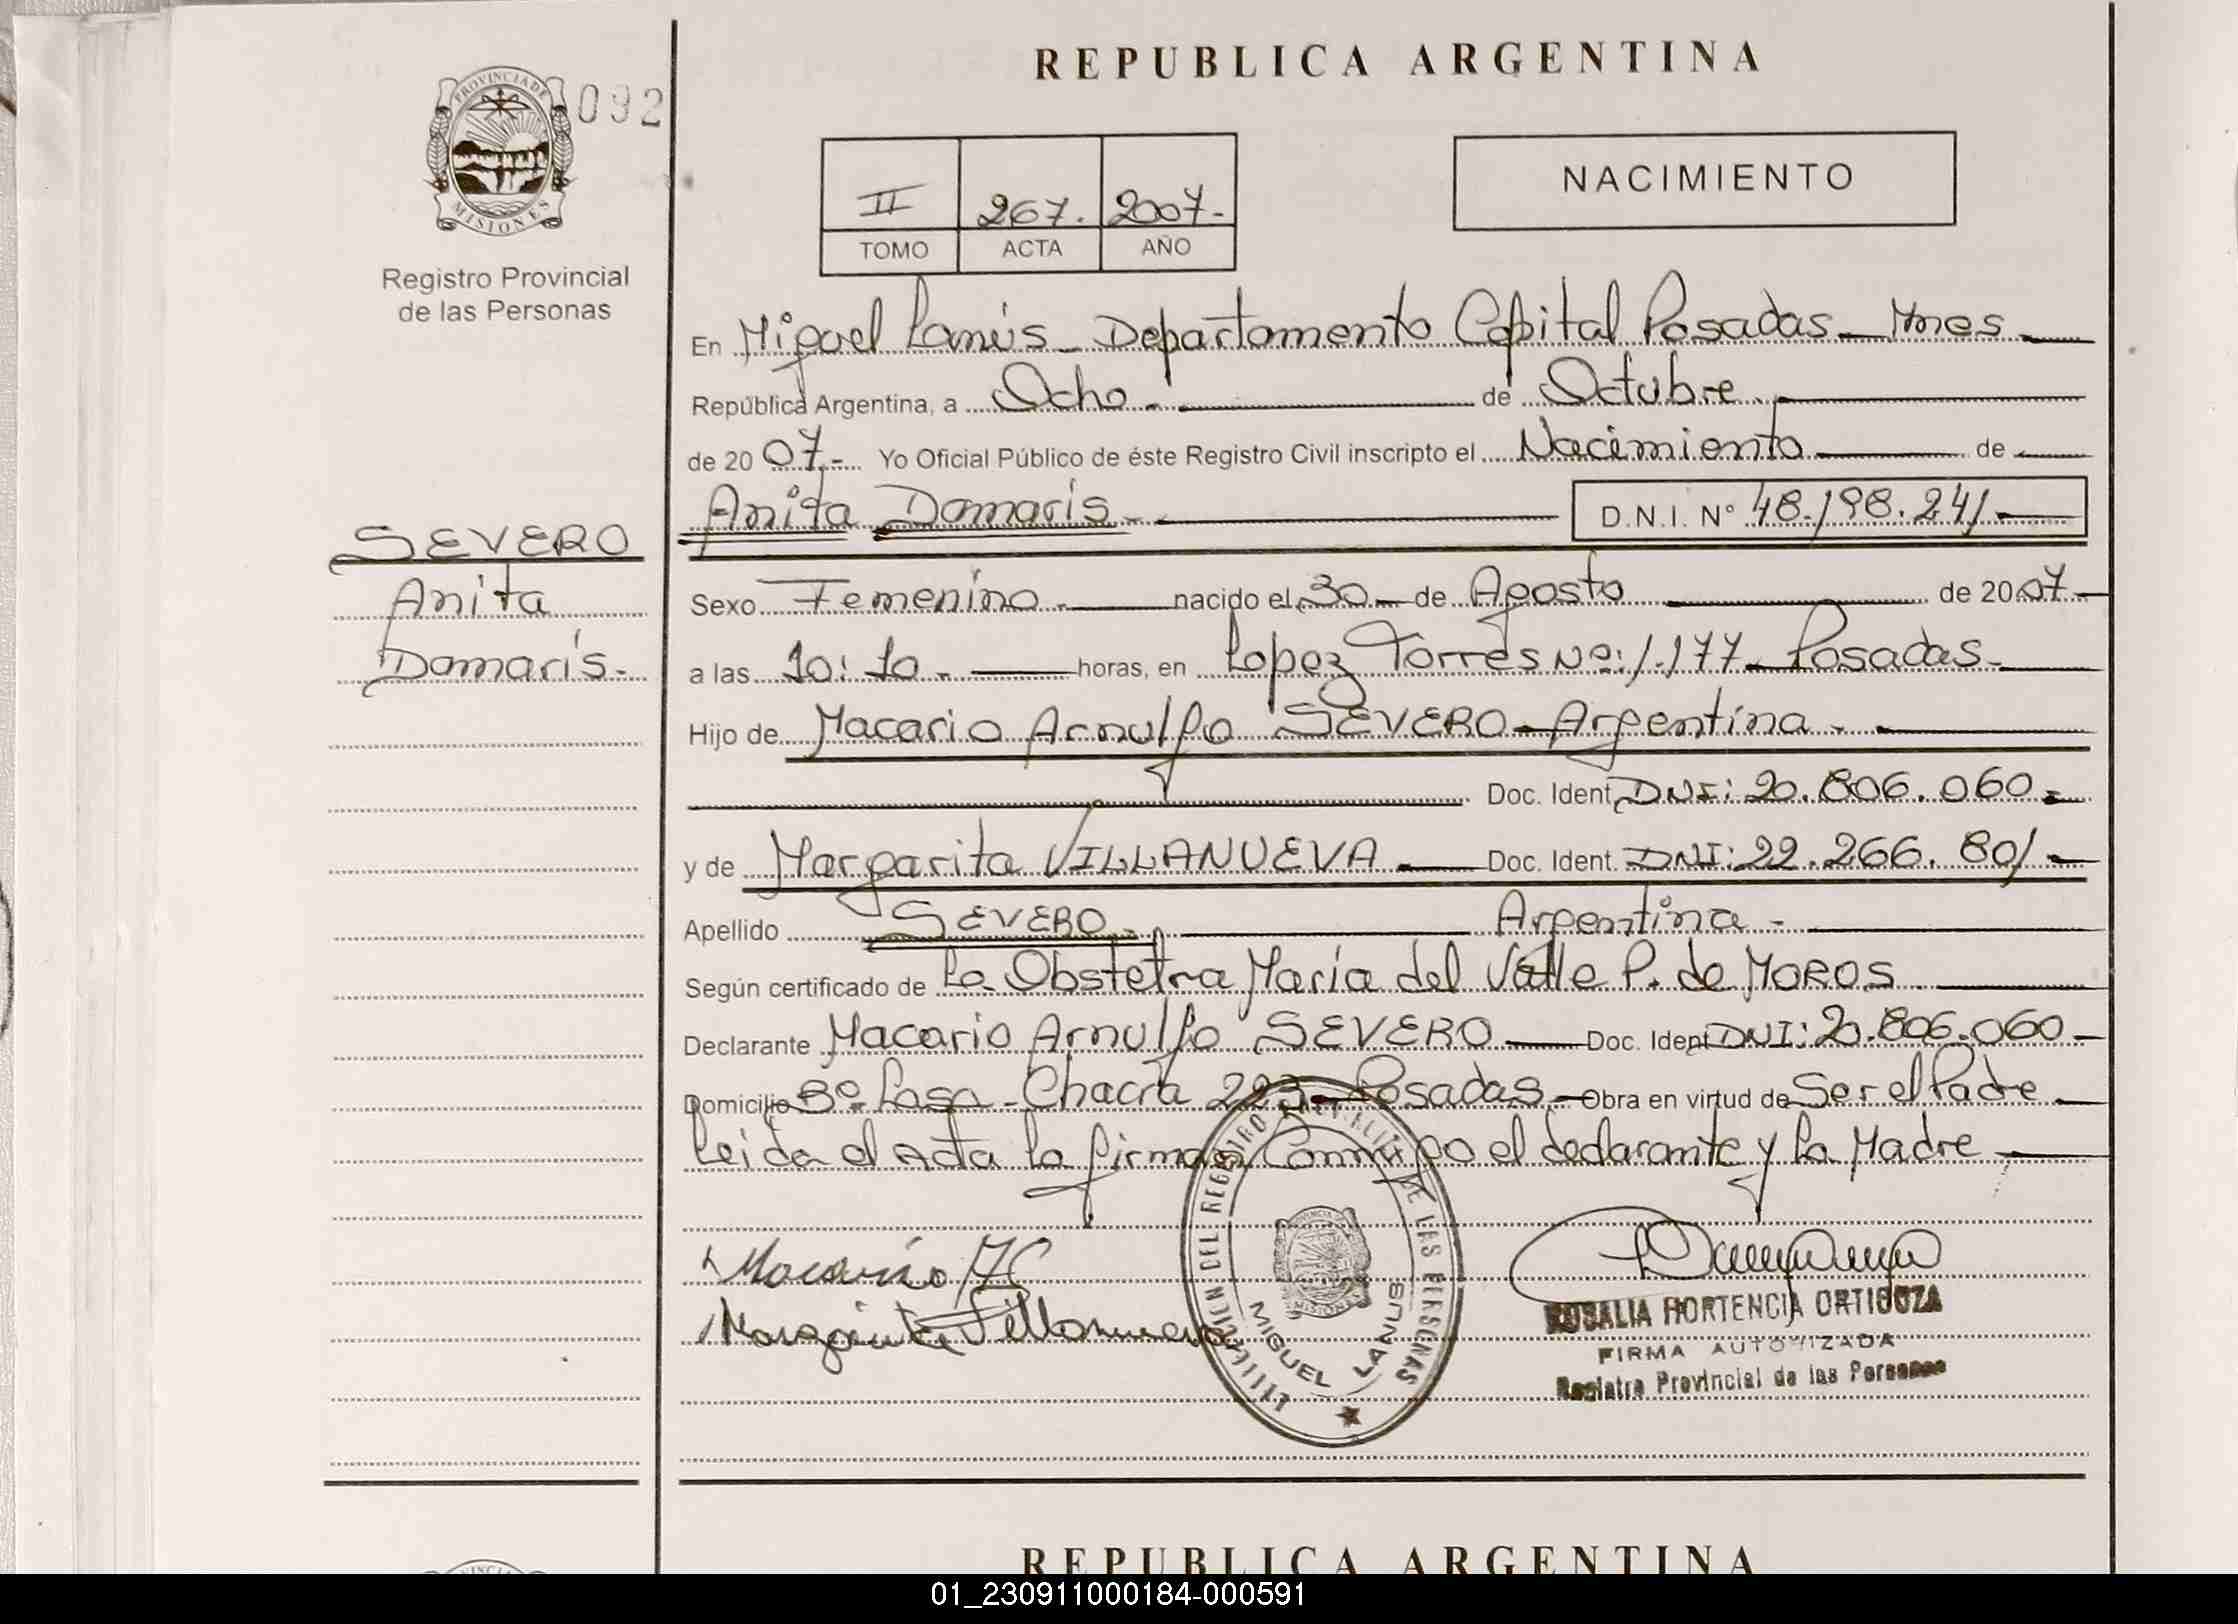 REPUBLICA ARGENTINA
PROVINCIA DE
MISIONES
092
Registro Provincial
de las Personas
II 267. 2007.-
TOMO ACTA AÑO
NACIMIENTO
En Miguel Lanús - Departamento Capital Posadas - Mnes -
República Argentina, a Ocho.- de Octubre.
de 2007.- Yo Oficial Público de éste Registro Civil inscripto el Nacimiento de
Anita Damaris.- D.N.I. Nº 48.198.241.-
SEVERO
Anita
Damaris.-
Sexo Femenino.- nacido el 30 - de Agosto de 2007 -
a las 10:10.- horas, en Lopez Torres Nº: 1.177 - Posadas.-
Hijo de Macario Arnulfo SEVERO - Argentina.-
Doc. Ident. DNI: 20.806.060.-
y de Margarita VILLANUEVA - Doc. Ident. DNI: 22.266.801 -
Apellido SEVERO.- Argentina -
Según certificado de La Obstetra María del Valle P. de MOROS
Declarante Macario Arnulfo SEVERO - Doc. Ident. DNI: 20.806.060 -
Domicilio Bº. - Chacra 223 - Posadas.- Obra en virtud de Ser el Padre -
Leida el Acta la firman Conmigo el declarante y la Madre -
Macario
Margarita Villanueva
DEL REGISTRO DE LAS PERSONAS
MIGUEL LANUS
ROSALIA HORTENCIA ORTIGOZA
FIRMA AUTORIZADA
Registro Provincial de las Personas
REPUBLICA ARGENTINA
01_230911000184-000591